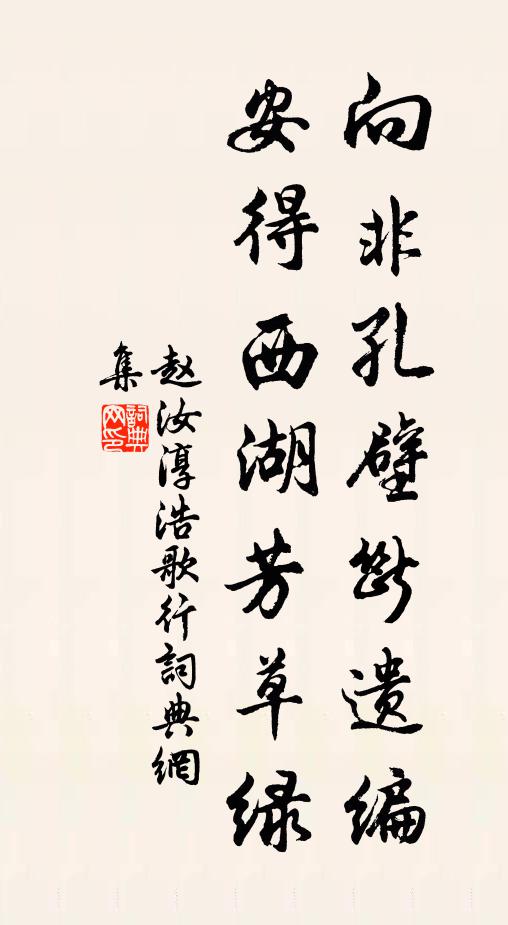 向非孔壁断遗编
安得西湖芳草绿
赵汝淳浩歌行詞典網
集
詞典
网印